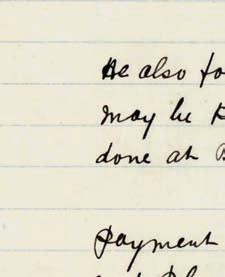 He also
may be
done at
Payment